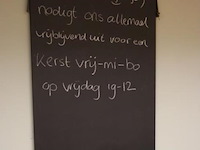 nodigt ons allemaal
vrijblijvend uit voor een
Kerst vrij-mi-bo
op vrijdag 19-12